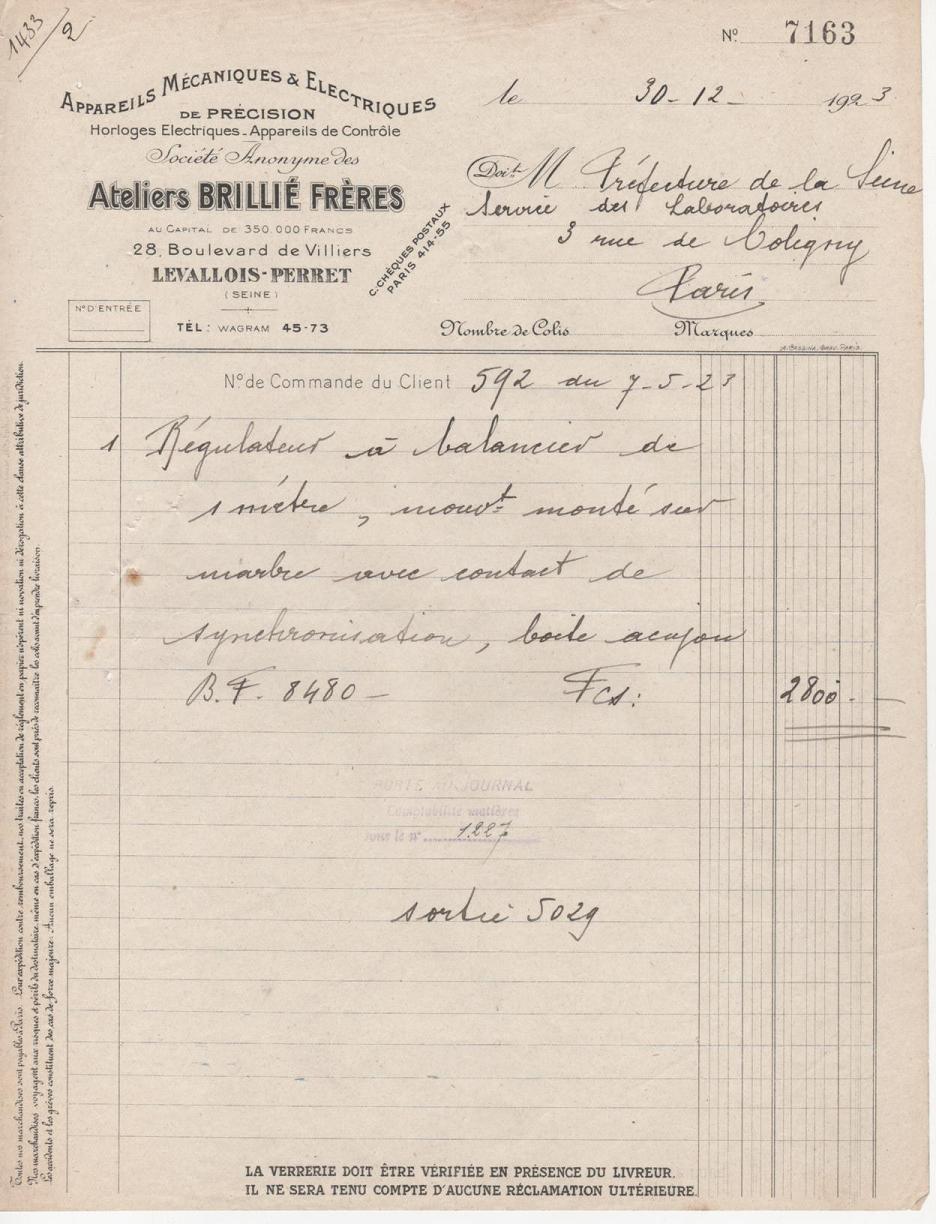 1433/2
N° 7163
APPAREILS MÉCANIQUES & ELECTRIQUES
DE PRÉCISION
Horloges Electriques - Appareils de Contrôle
Société Anonyme des
Ateliers BRILLIÉ FRÈRES
AU CAPITAL DE 350.000 FRANCS
28, Boulevard de Villiers
LEVALLOIS-PERRET
(SEINE)
N° D'ENTRÉE
TÉL: WAGRAM 45-73
C. CHÈQUES POSTAUX
PARIS 414-55
le 30-12- 1923
Doit M Préfecture de la Seine
Service des Laboratoires
3 rue de Coligny
Paris
Nombre de Colis Marques
N° de Commande du Client 592 du 7-5-23
1 Régulateur à balancier de
1 mètre, mouvt monté sur
marbre avec contact de
synchronisation, boite acajou
B.F. 8480 - Fcs: 2800 -
PORTÉ AU JOURNAL
Comptabilité matières
sous le n° 1227
sortie 5029
Toutes nos marchandises sont payables à Paris. Leur expédition contre remboursement, nos traites ou acceptation de règlement en papier n'opèrent ni novation ni dérogation à cette clause attributive de juridiction.
Nos marchandises voyagent aux risques et périls du destinataire, même en cas d'expédition franco, les clients sont priés de reconnaître les colis avant d'en prendre livraison.
Les accidents et les grèves constituent des cas de force majeure. Aucun emballage ne sera repris.
LA VERRERIE DOIT ÊTRE VÉRIFIÉE EN PRÉSENCE DU LIVREUR.
IL NE SERA TENU COMPTE D'AUCUNE RÉCLAMATION ULTÉRIEURE.